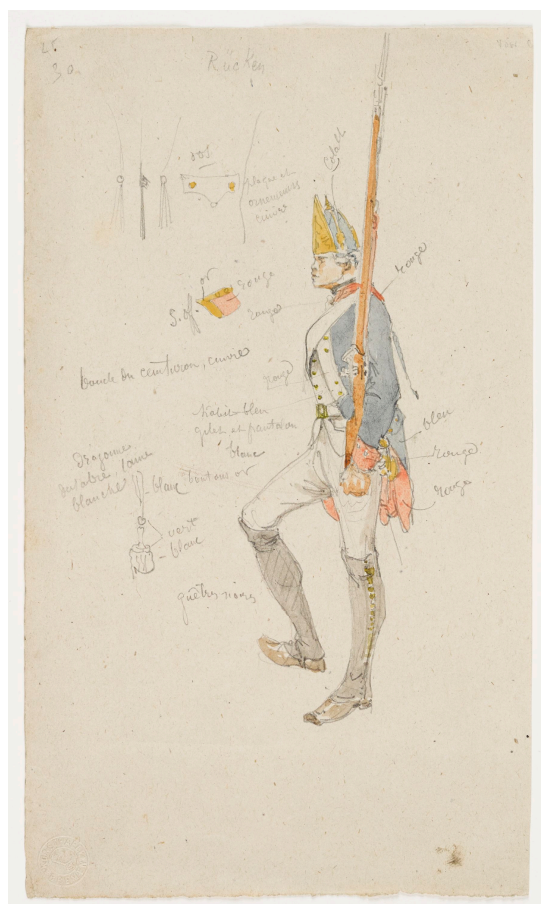 30.
Rücken
dos
plaque et
ornements
cuivre
Cobalt
rouge
or
rouge
S. off.
rouge
boucle du ceinturon, cuivre
rouge
habit bleu
gilet et pantalon
blanc
boutons or
bleu
rouge
rouge
Dragonne
de sabre laine
blanche
blanc
vert
blanc
guêtres noires